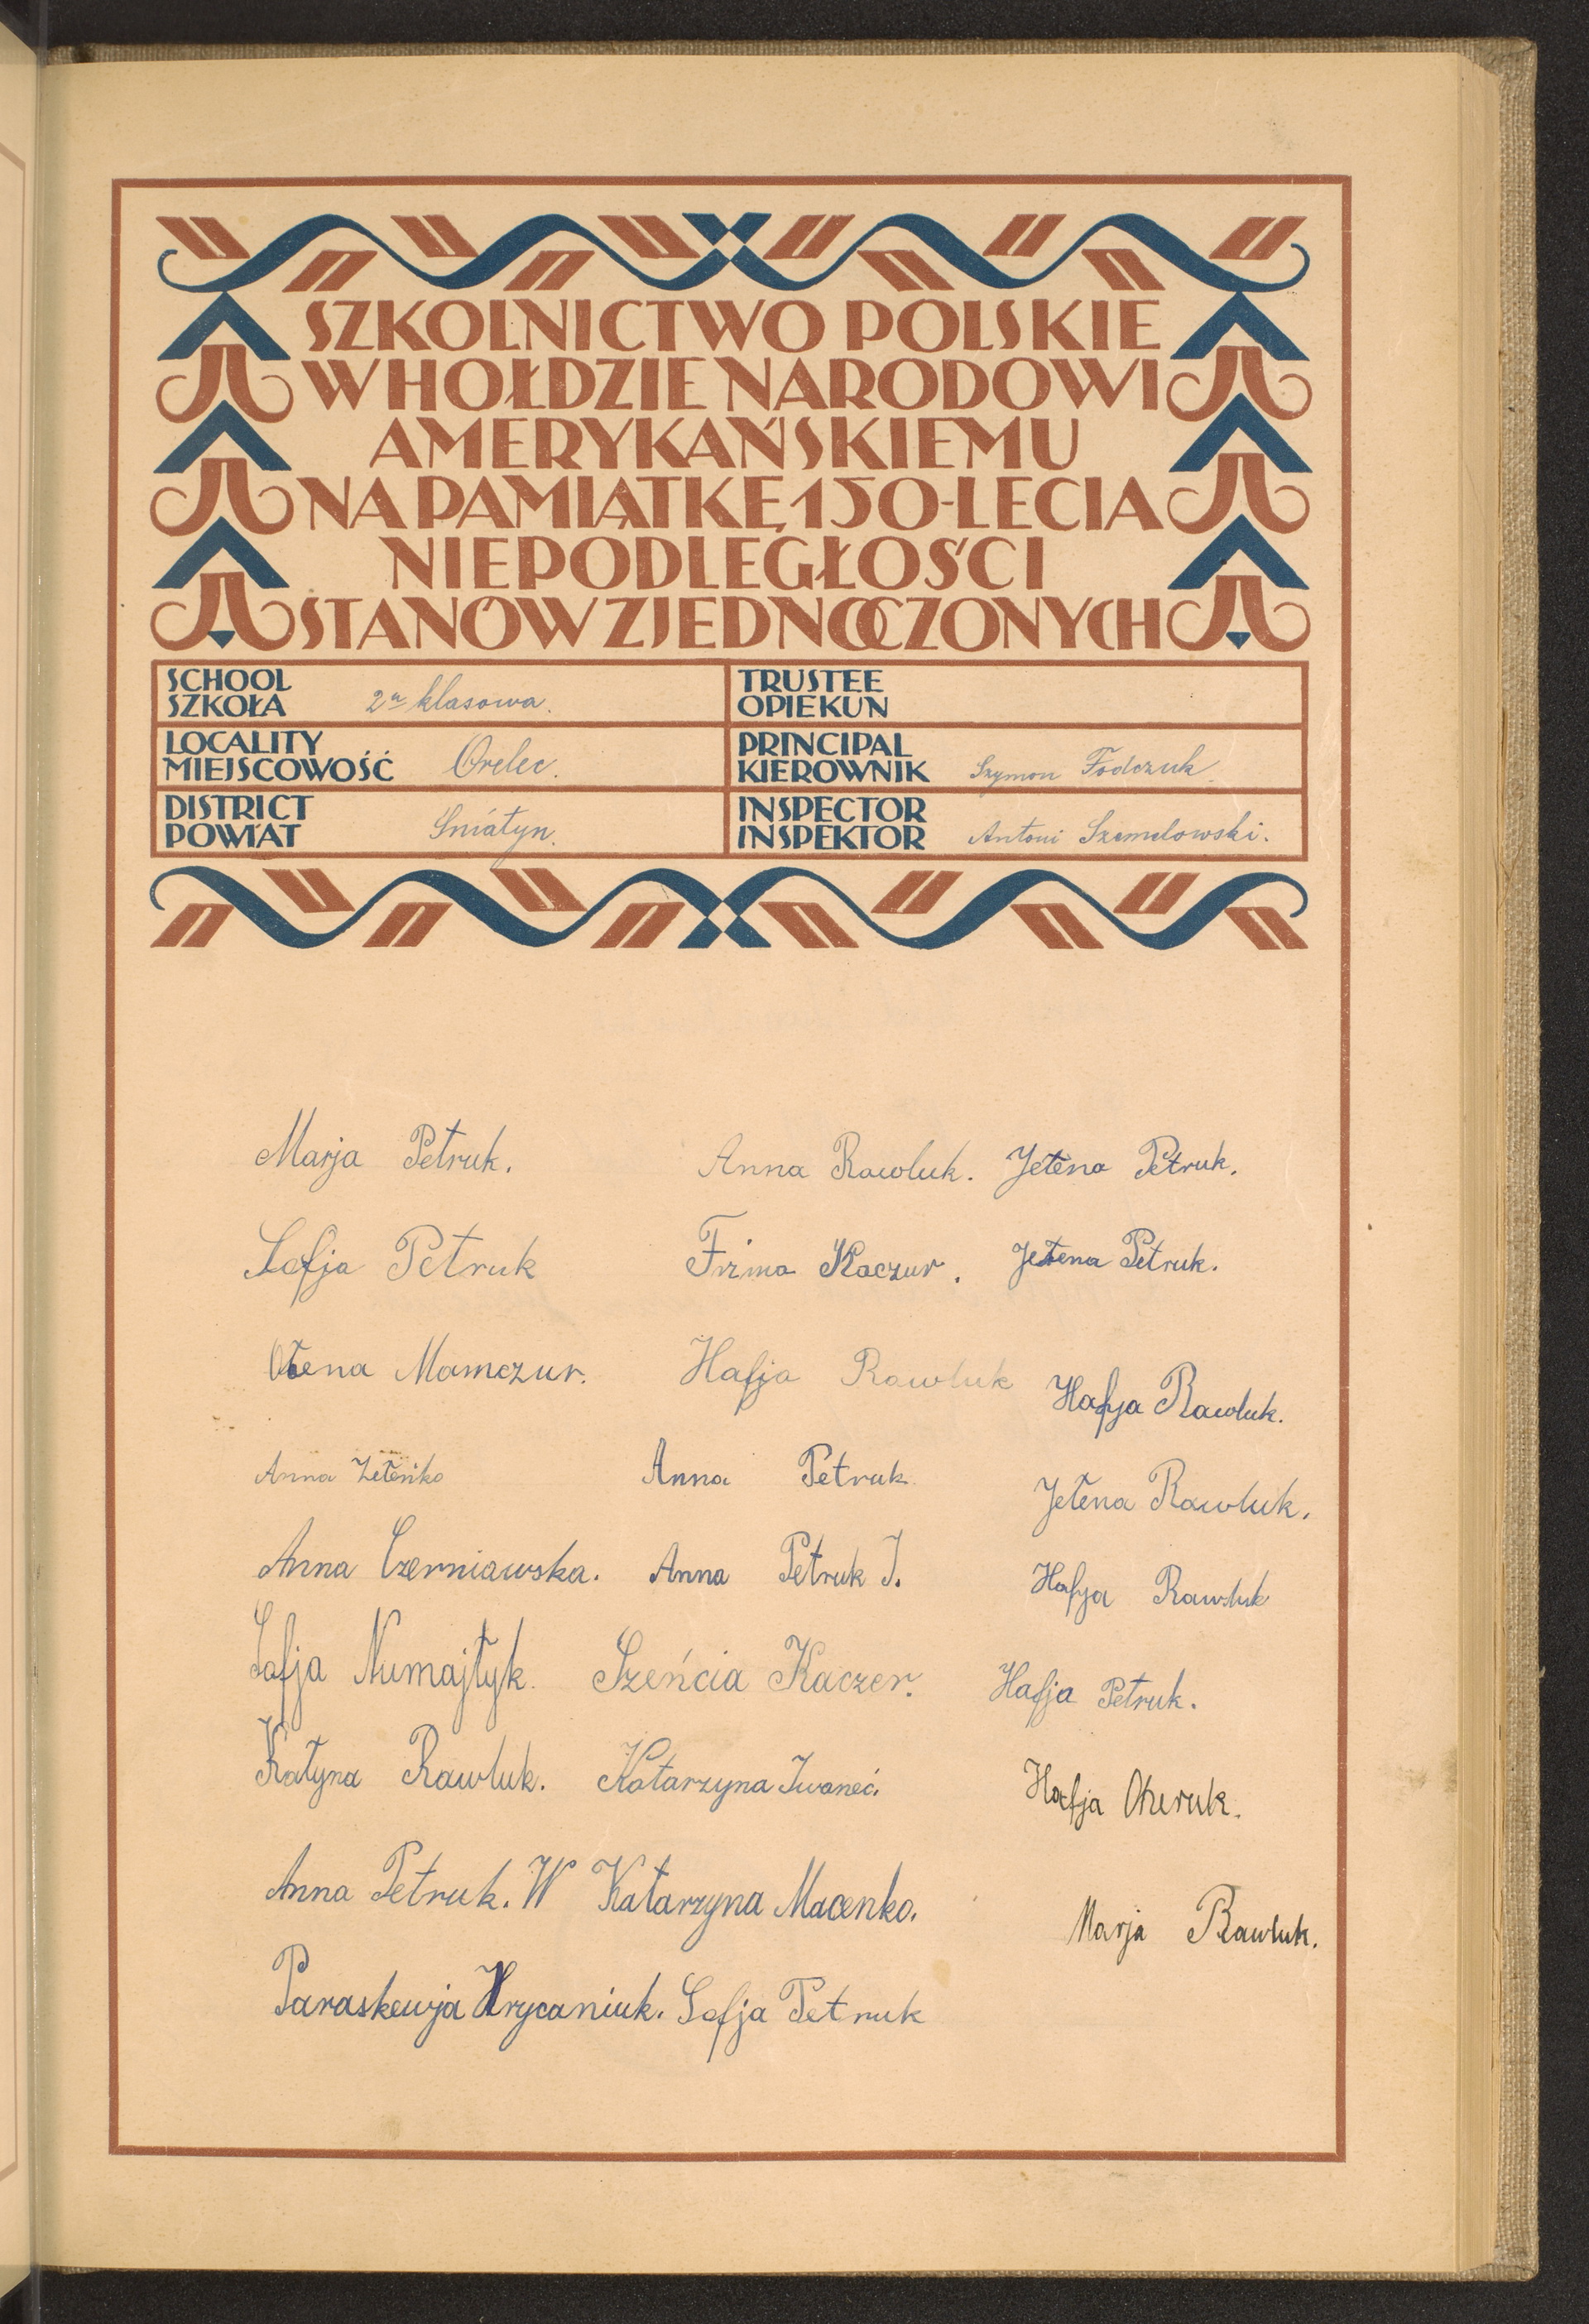 SZKOLNICTWO POLSKIE
W HOŁDZIE NARODOWI
AMERYKAŃSKIEMU
NA PAMIĄTKĘ 150-LECIA
NIEPODLEGŁOŚCI
STANÓW ZJEDNOCZONYCH
SCHOOL
SZKOŁA 2 klasowa.
TRUSTEE
OPIEKUN
LOCALITY
MIEJSCOWOŚĆ Orelec.
PRINCIPAL
KIEROWNIK Szymon Fodczuk
DISTRICT
POWIAT Śniatyn.
INSPECTOR
INSPEKTOR Antoni Szemelowski.
Marja Petruk. Anna Rawluk. Jełena Petruk.
Sofja Petruk Frzina Kaczur. Jełena Petruk.
Ołena Mamczur. Hafja Rawluk Hafja Rawluk.
Anna Zełenko Anna Petruk Jełena Rawluk.
Anna Czerniawska. Anna Petruk J. Hafja Rawluk
Sofja Numajłyk. Szeńcia Kaczer. Hafja Petruk.
Katyna Rawluk. Katarzyna Iwaneć. Hafja
Anna Petruk. W Katarzyna Macenko. Marja Rawluk.
Paraskewja Hrycaniuk. Sofja Petruk